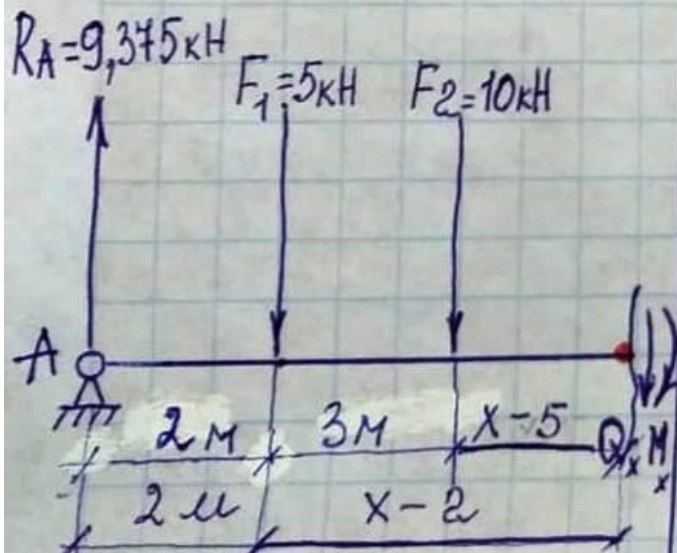 RA=9,375кН
F1=5кН F2=10кН
A
2м 3м x-5 Qx Mx
2м x-2